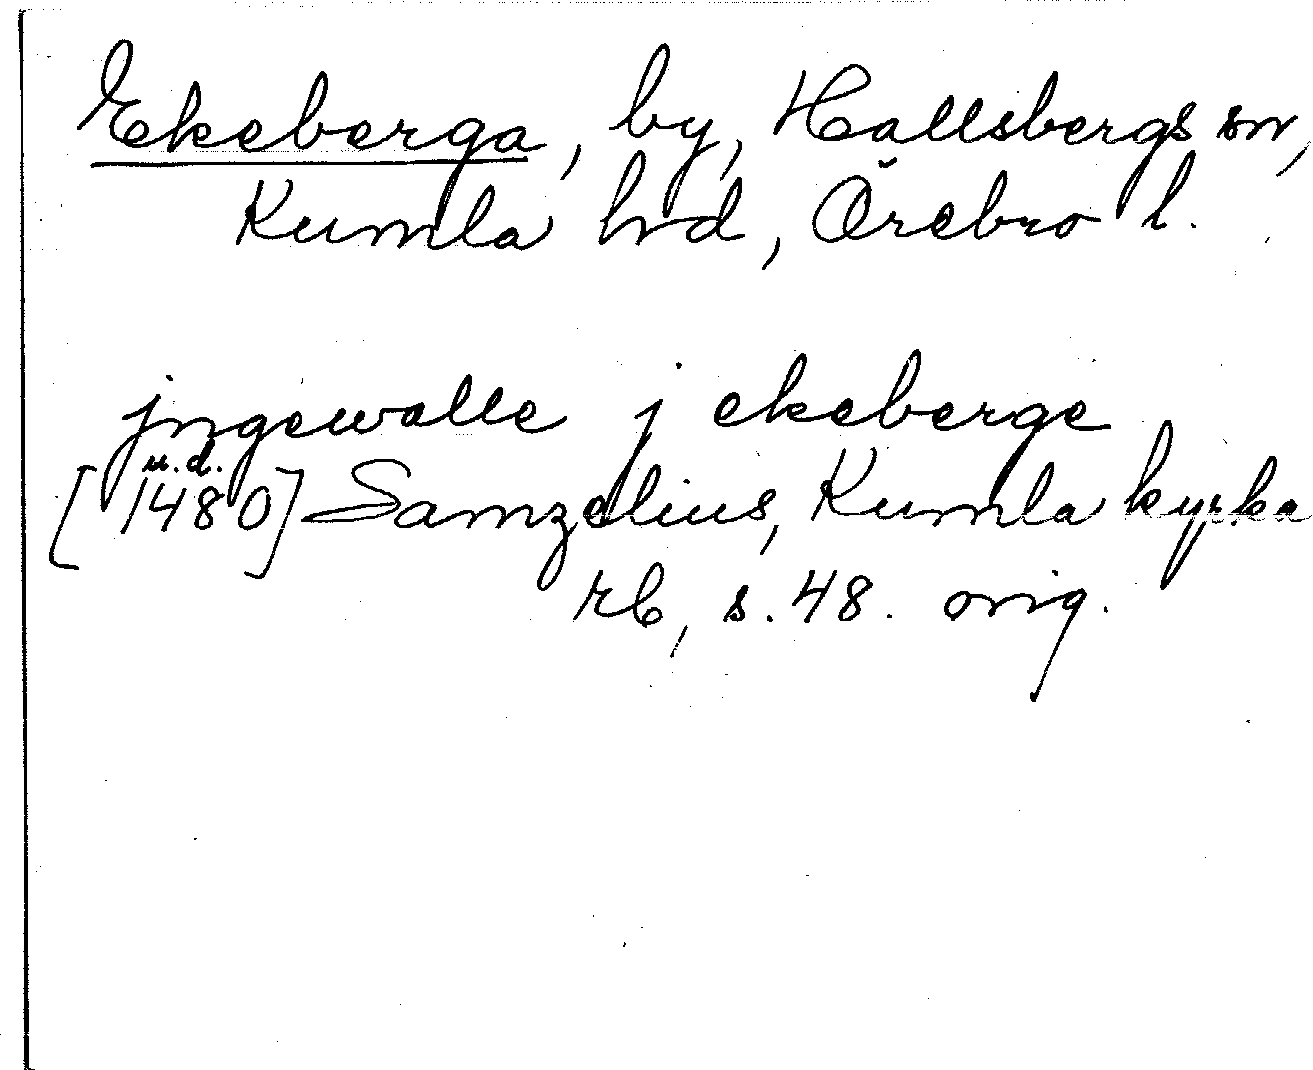 Ekeberga, by, Hallsbergs sn,
Kumla hd, Örebro l.
jngewalle j ekeberge
u.d.
[1480] Samzelius, Kumla kyrka
rb, s. 48. orig.